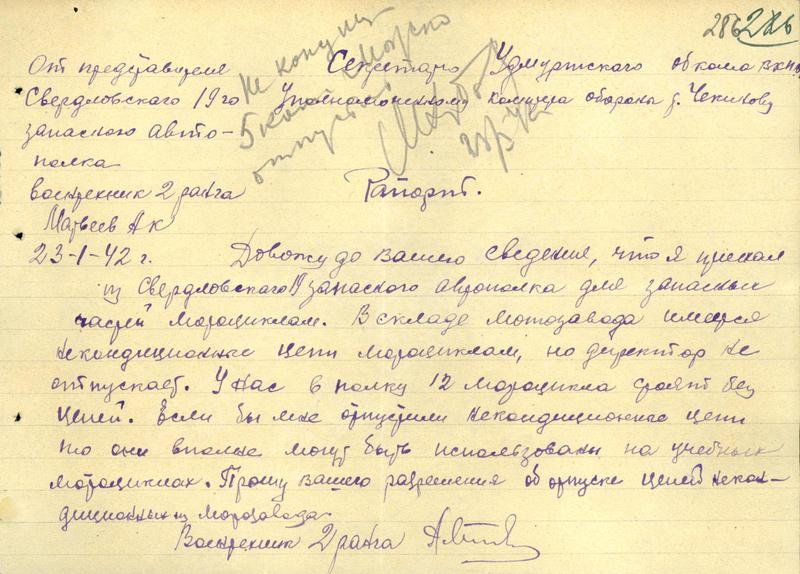 286 286
От представителя
Свердловского 19го
запасного авто-
полка
военрехник 2 ранга
Матвеев А К
23-1-42 г.
Секретарю Удмуртского обкома ВКП(б)
Уполномоченному комитета обороны т. Чекинову
Не кондиц
5 комп
отпус
можно
Рапорт.
Довожу до вашего сведения, что я приехал
из Свердловского 19 запасного автополка для запасных
частей мотоциклам. В складе мотозавода имеются
некондиционные цепи мотоциклам, но директор не
отпускает. У нас в полку 12 мотоцикла стоят без
цепей. Если бы мне отпустили некондиционные цепи
то они вполне могут быть использованы на учебных
мотоциклах. Прошу вашего разрешения об отпуске цепей некон-
диционных из мотозавода
Воентехник 2 ранга